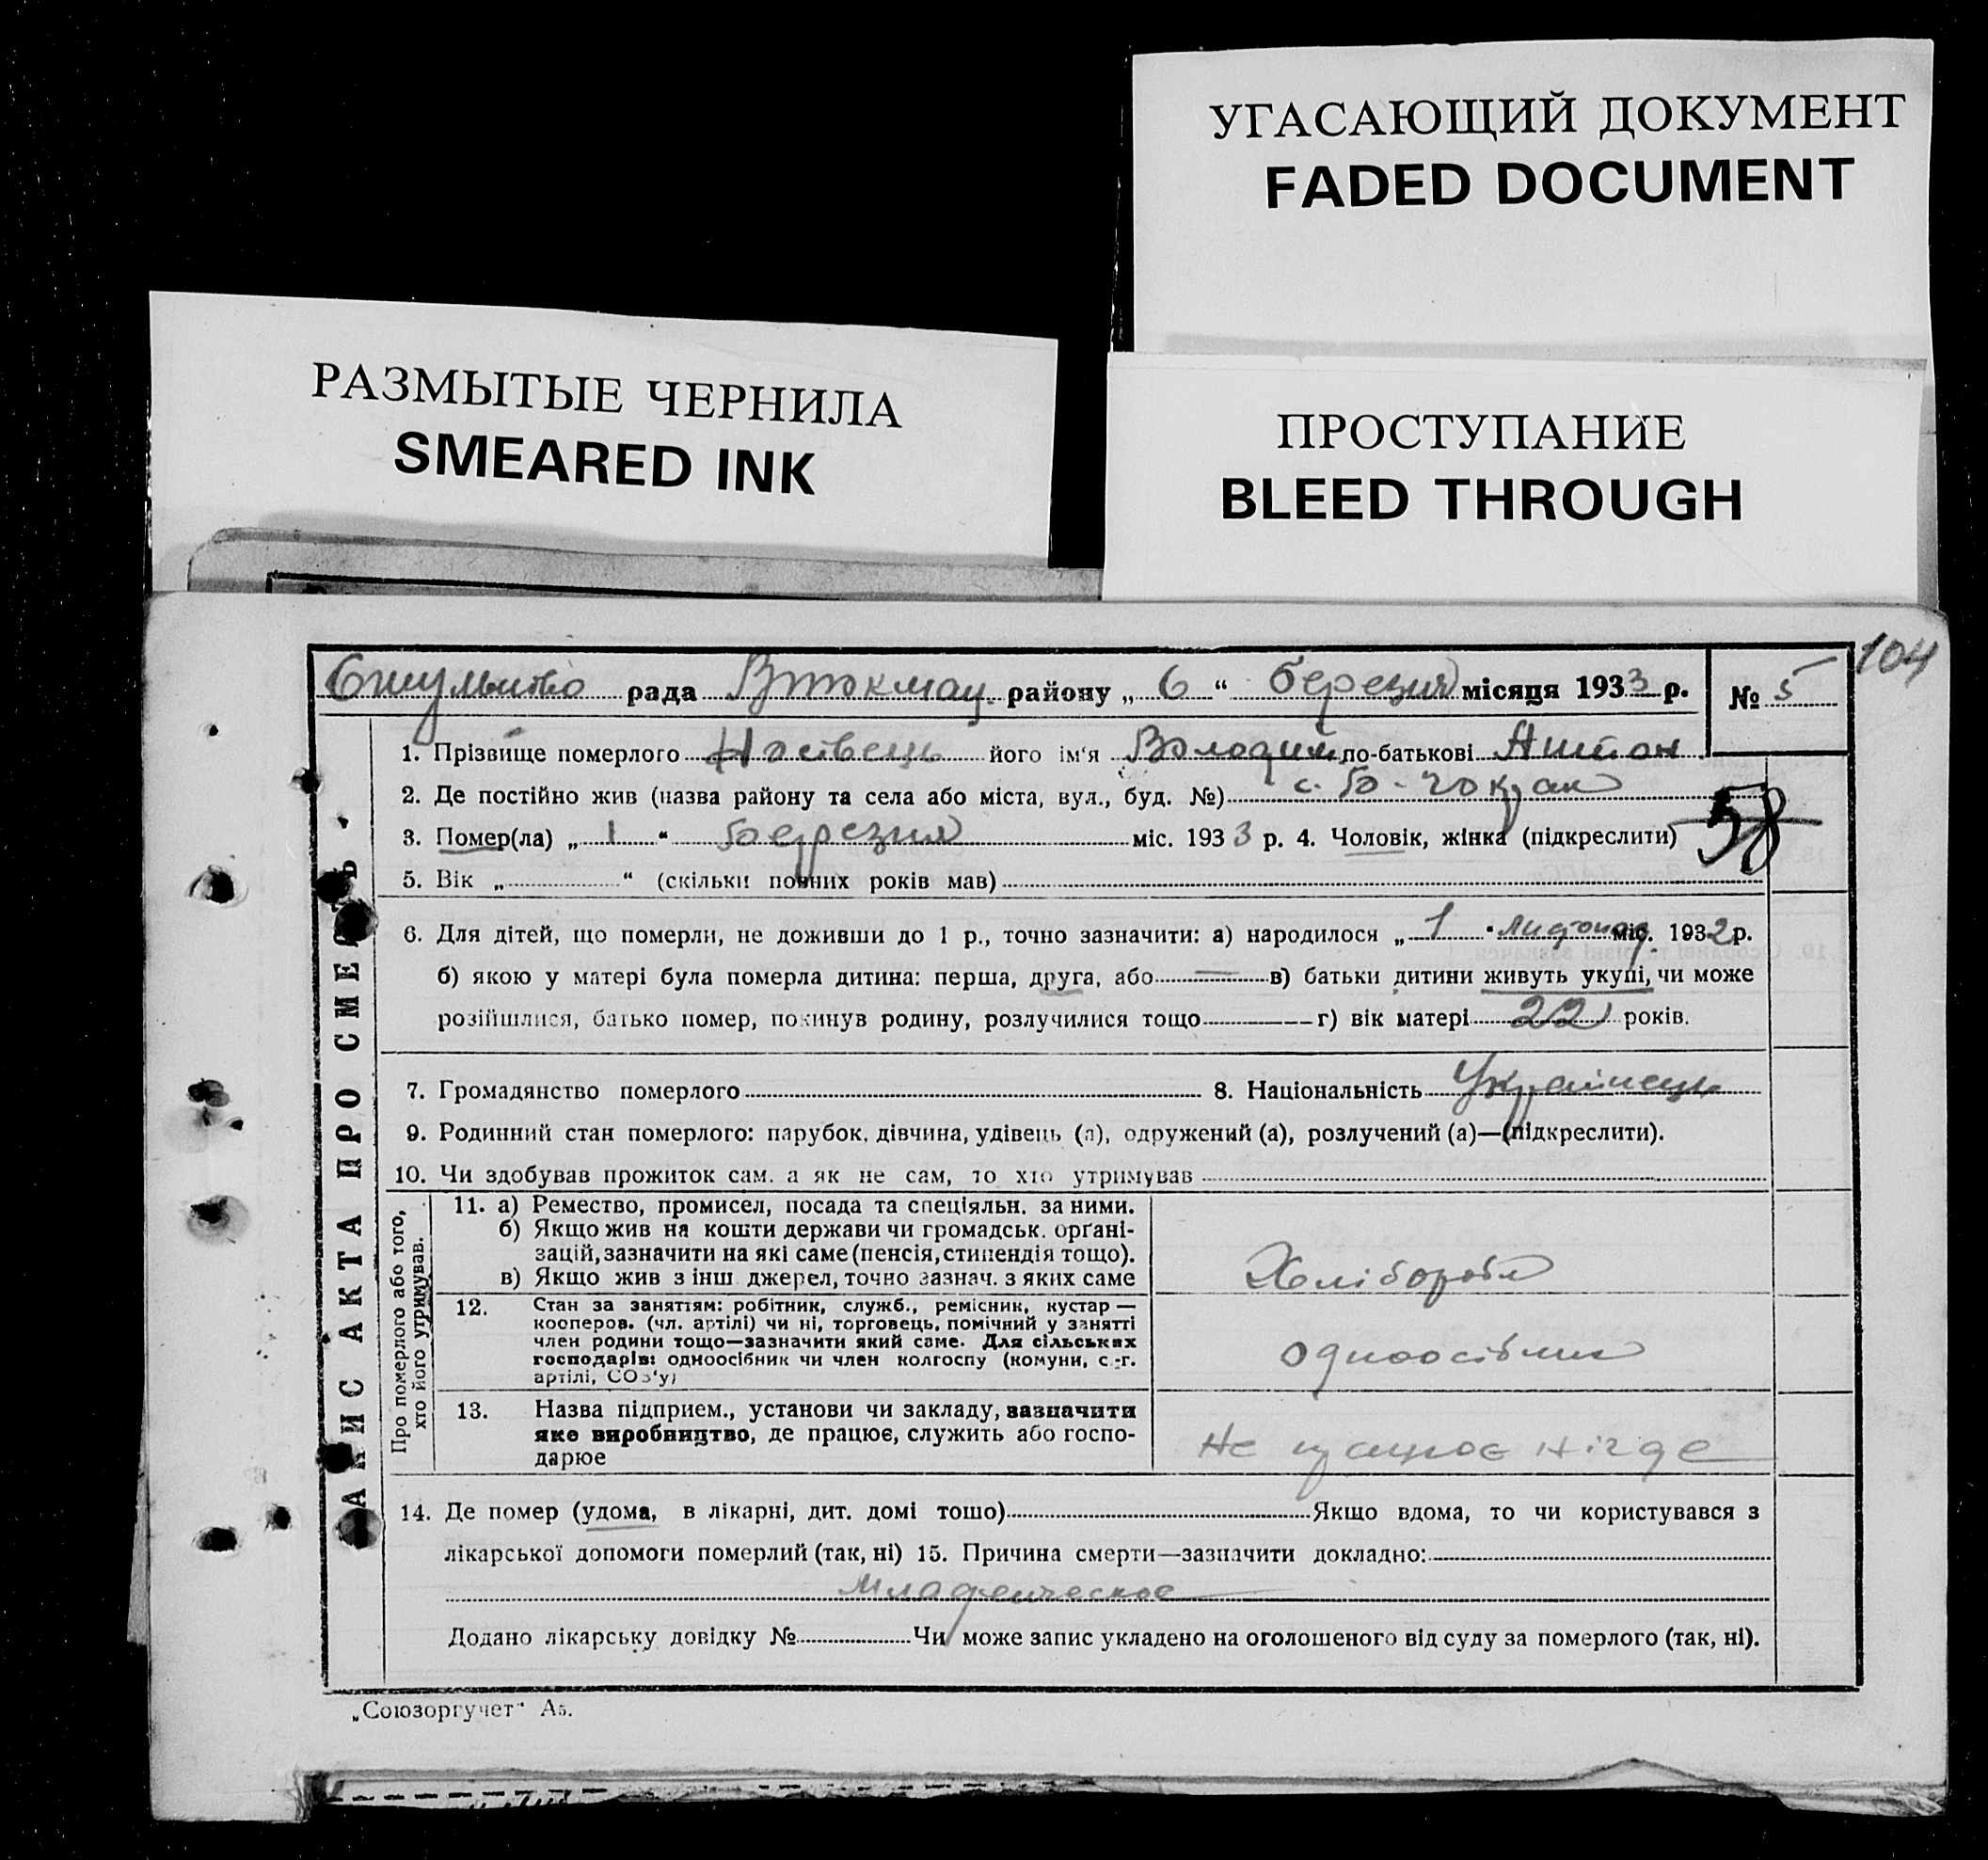 УГАСАЮЩИЙ ДОКУМЕНТ
FADED DOCUMENT
РАЗМЫТЫЕ ЧЕРНИЛА
SMEARED INK
ПРОСТУПАНИЕ
BLEED THROUGH
104
рада В Токмац. району „ 6 “ березня місяця 1933 р.
№ 5
1. Прізвище померлого Носівець його ім'я Володим по-батькові Антон
2. Де постійно жив (назва району та села або міста, вул., буд. №) с. Б-Токмак
3. Помер(ла) „ 1 “ Березня міс. 193 3 р. 4. Чоловік, жінка (підкреслити)
58
5. Вік „ “ (скільки повних років мав)
6. Для дітей, що померли, не доживши до 1 р., точно зазначити: а) народилося „ 1 “ листопад міс. 1932 р.
б) якою у матері була померла дитина: перша, друга, або — в) батьки дитини живуть укупі, чи може
розійшлися, батько помер, покинув родину, розлучилися тощо г) вік матері 22 років.
7. Громадянство померлого 8. Національність Українець
9. Родинний стан померлого: парубок, дівчина, удівець (а), одружений (а), розлучений (а)—(підкреслити).
10. Чи здобував прожиток сам, а як не сам, то хто утримував
ЗАПИС АКТА ПРО СМЕРТЬ.
Про померлого або того,
хто його утримував.
11. а) Ремество, промисел, посада та спеціяльн. за ними.
б) Якщо жив на кошти держави чи громадськ. орґані-
зацій, зазначити на які саме (пенсія, стипендія тощо).
в) Якщо жив з інш. джерел, точно зазнач. з яких саме
Хлібороб
12. Стан за заняттям: робітник, служб., ремісник, кустар —
кооперов. (чл. артілі) чи ні, торговець, помічний у занятті
член родини тощо—зазначити який саме. Для сільських
господарів: одноосібник чи член колгоспу (комуни, с.-г.
артілі, СОЗ'у)
одноосібник
13. Назва підприєм., установи чи закладу, зазначити
яке виробництво, де працює, служить або госпо-
дарює
Не працює нігде
14. Де помер (удома, в лікарні, дит. домі тощо) Якщо вдома, то чи користувався з
лікарської допомоги померлий (так, ні) 15. Причина смерти—зазначити докладно:
Младенческое
Додано лікарську довідку № Чи може запис укладено на оголошеного від суду за померлого (так, ні).
„Союзоргучет“ А5.